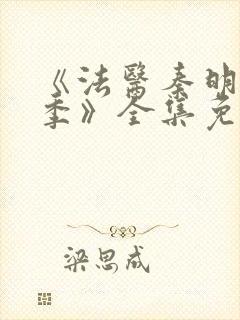 《法醫秦明
季》全集免
梁思成